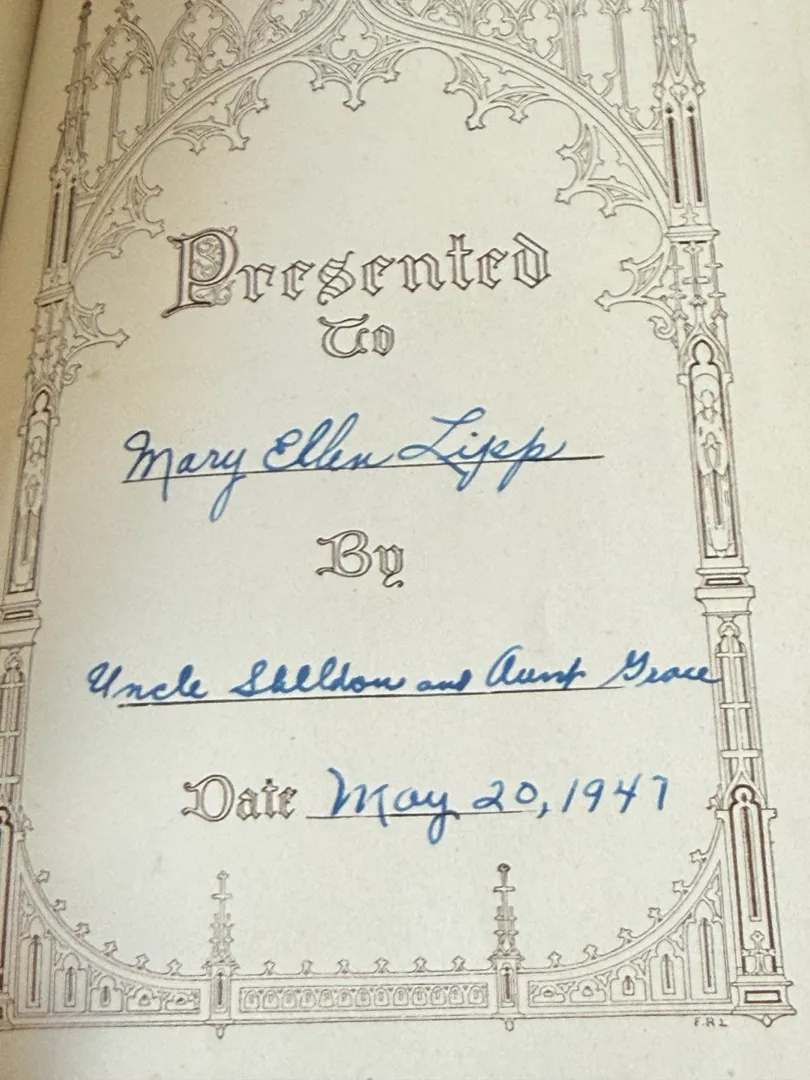 Presented
To
Mary Ellen Lipp
By
Uncle Shelldon and Aunt Grace
Date May 20, 1947
E.R.L